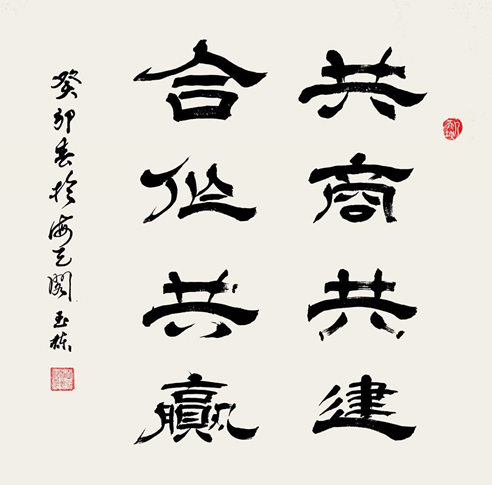 共商共建
合作共赢
癸卯春于海天阁玉栋